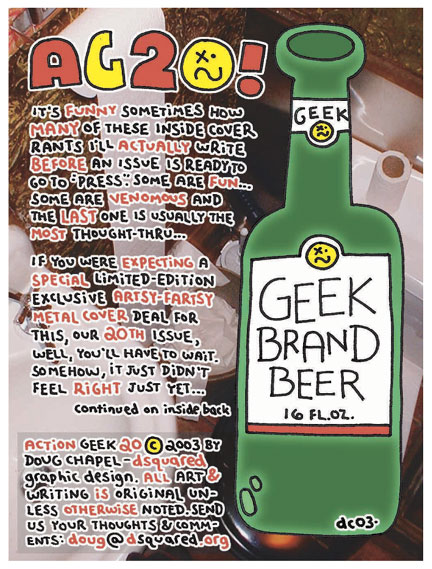 AG20!
IT'S FUNNY SOMETIMES HOW
MANY OF THESE INSIDE COVER
RANTS I'LL ACTUALLY WRITE
BEFORE AN ISSUE IS READY TO
GO TO "PRESS". SOME ARE FUN...
SOME ARE VENOMOUS AND
THE LAST ONE IS USUALLY THE
MOST THOUGHT-THRU...
IF YOU WERE EXPECTING A
SPECIAL LIMITED-EDITION
EXCLUSIVE ARTSY-FARTSY
METAL COVER DEAL FOR
THIS, OUR 20TH ISSUE,
WELL, YOU'LL HAVE TO WAIT.
SOMEHOW, IT JUST DIDN'T
FEEL RIGHT JUST YET...
continued on inside back
ACTION GEEK 20 © 2003 BY
DOUG CHAPEL-dsquared
graphic design. ALL ART &
WRITING IS ORIGINAL UN-
LESS OTHERWISE NOTED. SEND
US YOUR THOUGHTS & COMM-
ENTS: doug@dsquared.org
GEEK
GEEK
BRAND
BEER
16 FL.OZ.
dc03.